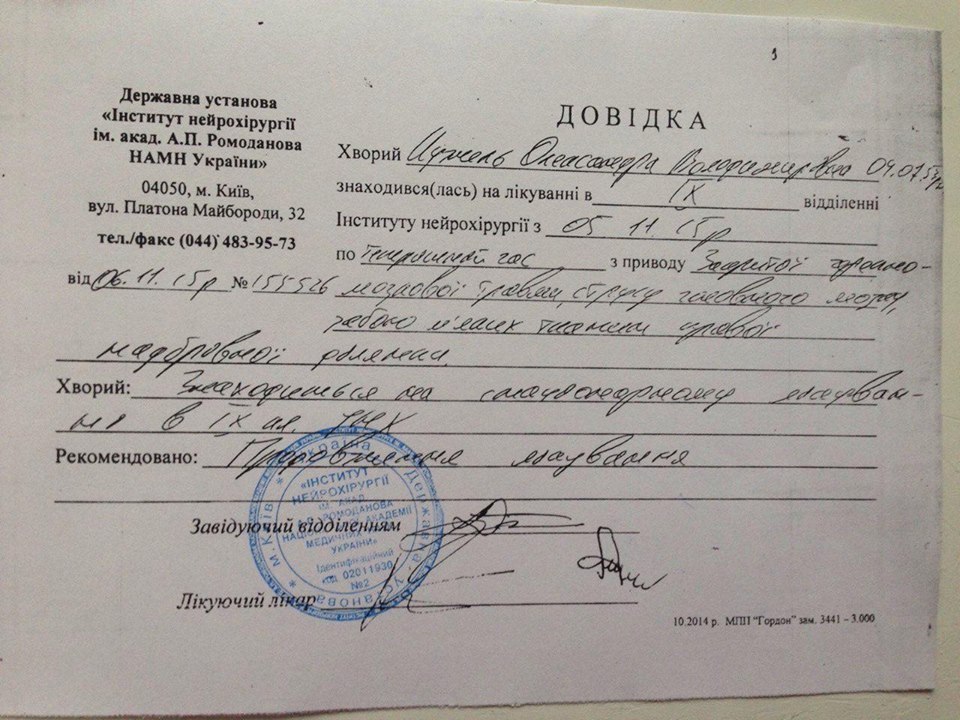 Державна установа
«Інститут нейрохірургії
ім. акад. А.П. Ромоданова
НАМН України»
04050, м. Київ,
вул. Платона Майбороди, 32
тел./факс (044) 483-95-73
від 06.11.15р № 155526
ДОВІДКА
Хворий Олександра Володимирівна
знаходився(лась) на лікуванні в IX відділенні
Інституту нейрохірургії з 05 11. 15р
по теперішній час з приводу Закритої черепно-
мозкової травми, струсу головного мозку,
забою м'яких тканин правої
надбрівної ділянки.
Хворий: Знаходиться на стаціонарному лікуван-
ні в IX кл. ІНХ
Рекомендовано: Продовження лікування
Завідуючий відділенням
Лікуючий лікар
м. Київ * Україна * Державна установа *
«ІНСТИТУТ
НЕЙРОХІРУРГІЇ
ІМ. АКАД.
А.П. РОМОДАНОВА
НАЦІОНАЛЬНОЇ АКАДЕМІЇ
МЕДИЧНИХ НАУК
УКРАЇНИ»
Ідентифікаційний
код 02011930
№2
10.2014 р. МПП "Гордон" зам. 3441 – 3.000